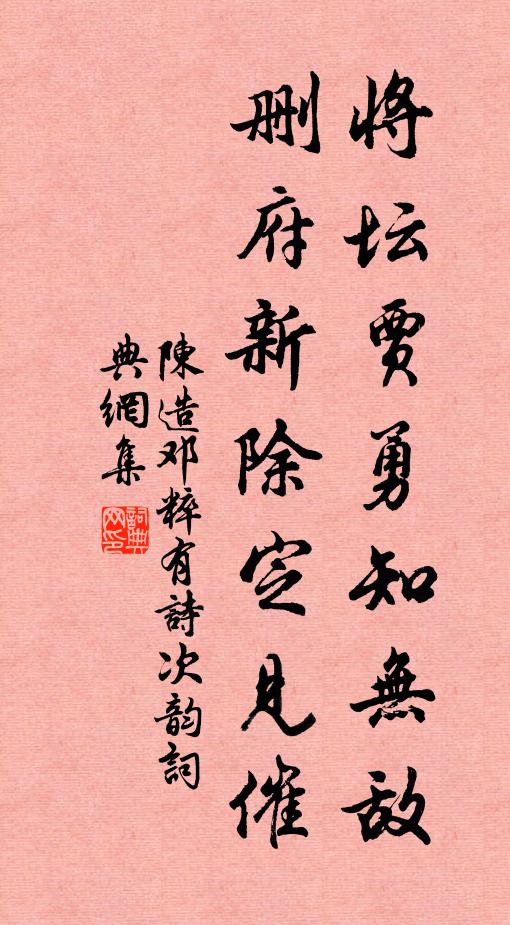 將坛贾勇知無敌
删府新除定見催
陳造邓粹有詩次韵詞
典網集
詞典網印